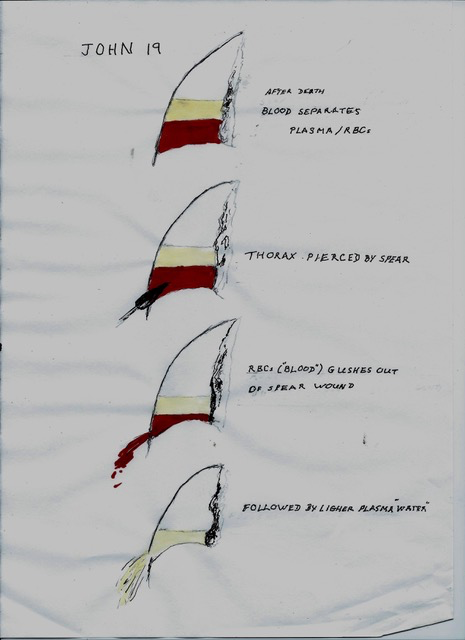 JOHN 19
AFTER DEATH
BLOOD SEPARATES
PLASMA/RBCs
THORAX PIERCED BY SPEAR
RBCs ("BLOOD") GUSHES OUT
OF SPEAR WOUND
FOLLOWED BY LIGHER PLASMA "WATER"